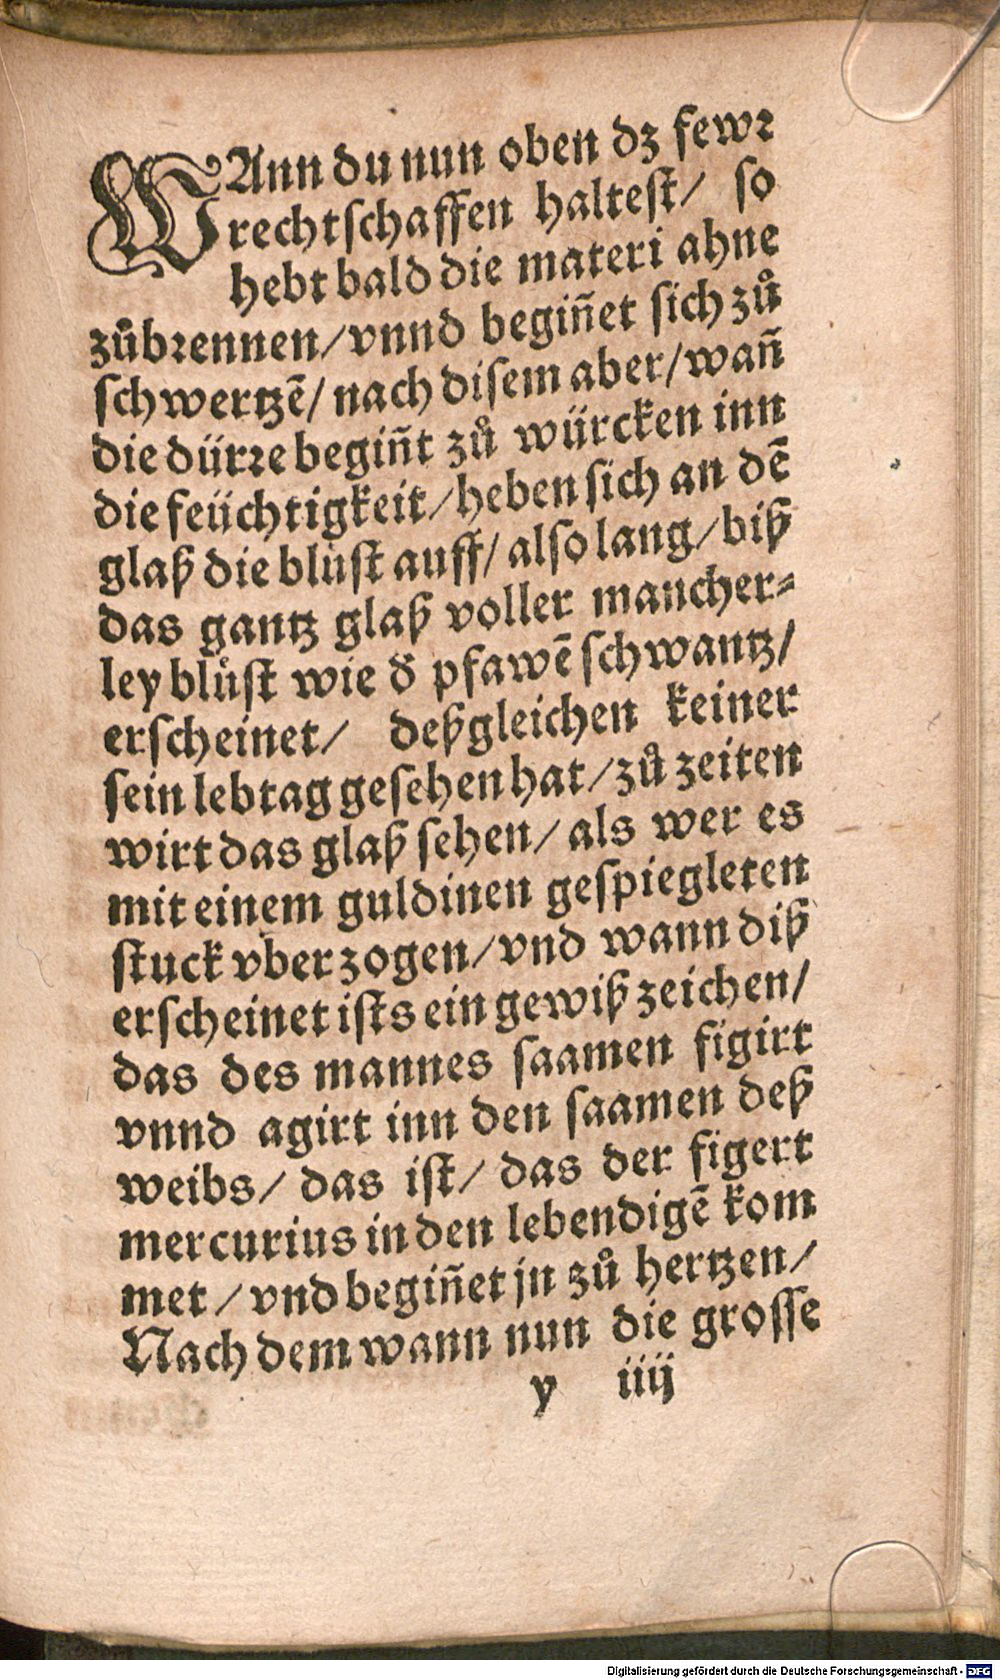 WAnn du nun oben dz fewr
rechtschaffen haltest/ so
hebt bald die materi ahne
zůbrennen/vnnd begiñet sich zů
schwertzē/nach disem aber/wañ
die dürre begiñt zů würcken inn
die feüchtigkeit/heben sich an dē
glaß die blůst auff/also lang/biß
das gantz glaß voller mancher⸗
ley blůst wie d̄ pfawē schwantz/
erscheinet/ deßgleichen keiner
sein lebtag gesehen hat/zů zeiten
wirt das glaß sehen/als wer es
mit einem guldinen gespiegleten
stuck vberzogen/vnd wann diß
erscheinet ists ein gewiß zeichen/
das des mannes saamen figirt
vnnd agirt inn den saamen deß
weibs/das ist/das der figert
mercurius in den lebendigē kom
met/vnd begiñet jn zů hertzen/
Nach dem wann nun die grosse
y iiij
Digitalisierung gefördert durch die Deutsche Forschungsgemeinschaft - DFG